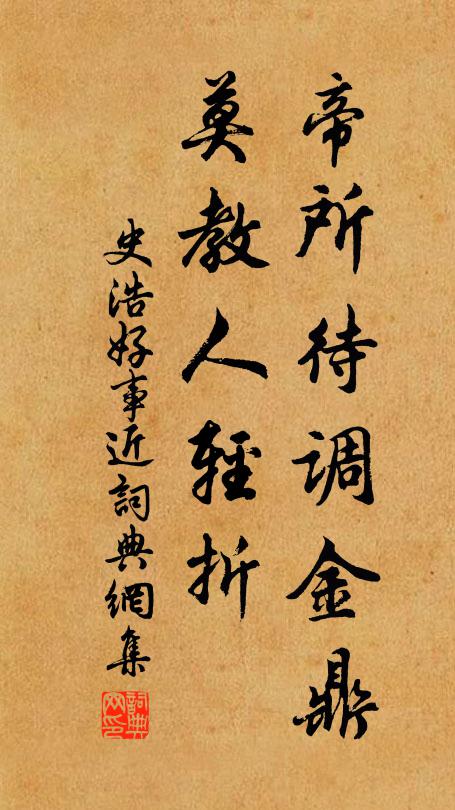 帝所待调金鼎
莫教人輕折
史浩好事近詞典網集
詞典网印